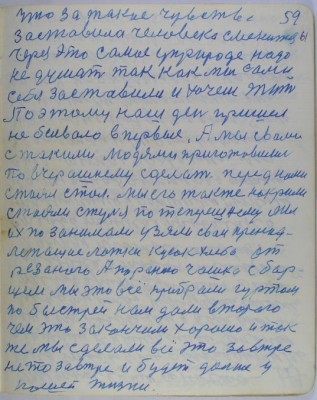 Что за такие чувства 59
заставила человека сменитьсы
через это самое природе надо
не думать так как мы сами
себя заставили и хочем жить
Поэтому наш ден пришел
не бывало в первые. А мы с вами
с такими людями приготовили
по вчерашнему сделать. перед нами
стоял стол. мы его также накрыли
ставили стуля по теперешнему мы
их по занимали узяли свои
ложки кусок хлеба от
резаного А пораною чашка с бор
щем мы это всё прибрали гуртом
по быстрей нам дали второго
чем это закончили хорошо и так
же мы сделали всё это завтре
не то завтре и будет далше у
нашей жизни.